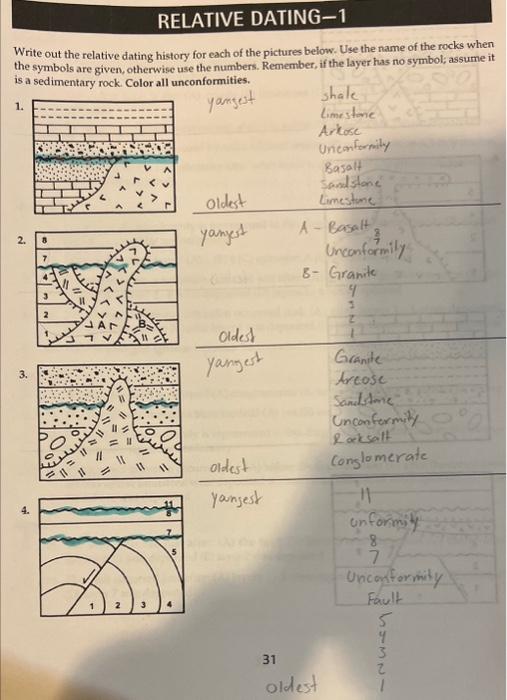 RELATIVE DATING—1
Write out the relative dating history for each of the pictures below. Use the name of the rocks when
the symbols are given, otherwise use the numbers. Remember, if the layer has no symbol; assume it
is a sedimentary rock. Color all unconformities.
1.
yangest
shale
Limestone
Arkose
Unconformity
Basalt
Sandstone
Limestone
oldest
2.
8
7
4
3
2
1
A
B
yangest
A - Basalt
8
7
Unconformity
B- Granite
4
3
2
1
oldest
3.
yangest
Granite
Arcose
Sandstone
Unconformity
Rocksalt
Conglomerate
oldest
4.
11
8
7
5
1 2 3 4
yangest
11
unformity
8
7
Unconformity
Fault
5
4
3
2
1
oldest
31